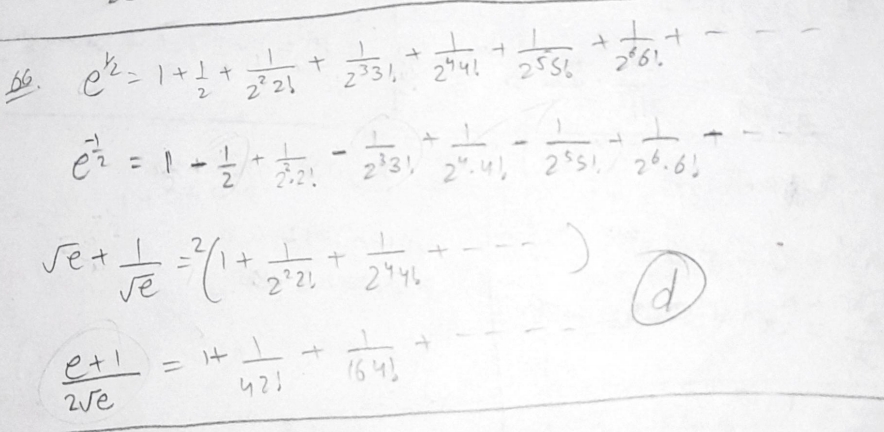 66. e^{1/2} = 1 + \frac{1}{2} + \frac{1}{2^2 2!} + \frac{1}{2^3 3!} + \frac{1}{2^4 4!} + \frac{1}{2^5 5!} + \frac{1}{2^6 6!} + - - -
e^{-1/2} = 1 - \frac{1}{2} + \frac{1}{2^2 \cdot 2!} - \frac{1}{2^3 3!} + \frac{1}{2^4 \cdot 4!} - \frac{1}{2^5 5!} + \frac{1}{2^6 \cdot 6!} + - - - -
\sqrt{e} + \frac{1}{\sqrt{e}} = 2(1 + \frac{1}{2^2 2!} + \frac{1}{2^4 4!} + - - - -)
d
\frac{e+1}{2\sqrt{e}} = 1 + \frac{1}{4 2!} + \frac{1}{16 4!} + - - - - -